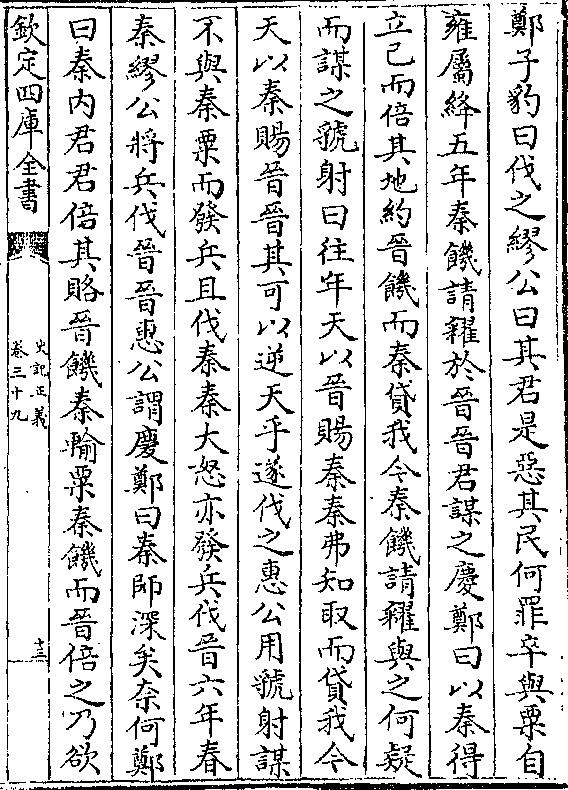 鄭子豹曰伐之繆公曰其君是惡其民何罪卒與粟自
雍屬絳五年秦饑請糴於晉晉君謀之慶鄭曰以秦得
立已而倍其地約晉饑而秦貸我今秦饑請糴與之何疑
而謀之虢射曰往年天以晉賜秦秦弗知取而貸我今
天以秦賜晉晉其可以逆天乎遂伐之惠公用虢射謀
不與秦粟而發兵且伐秦秦大怒亦發兵伐晉六年春
秦繆公將兵伐晉晉惠公謂慶鄭曰秦師深矣奈何鄭
曰秦內君君倍其賂晉饑秦輸粟秦饑而晉倍之乃欲
欽定四庫全書
史記正義
卷三十九
十三